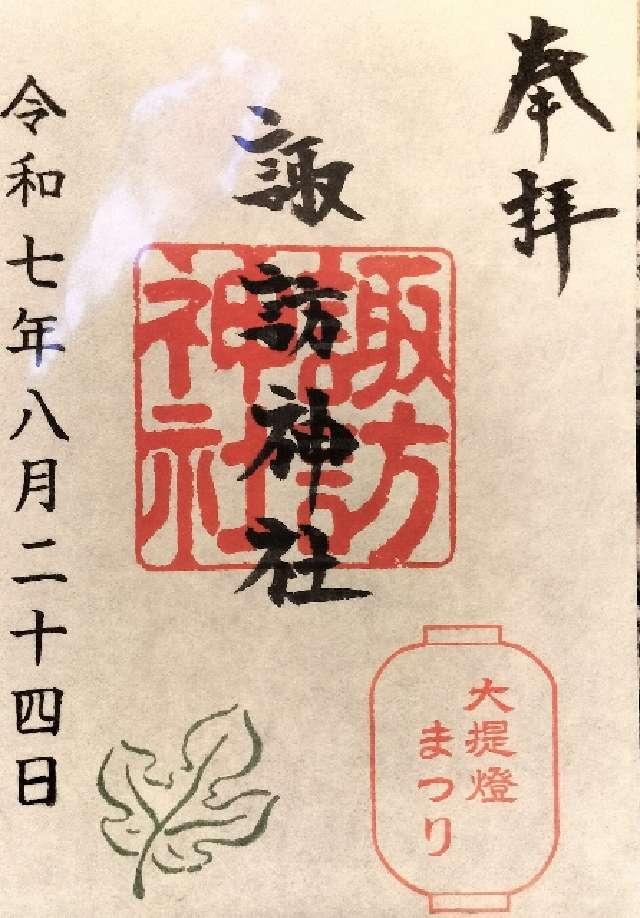 奉拝
諏訪神社
諏訪
神社
令和七年八月二十四日
大提燈
まつり